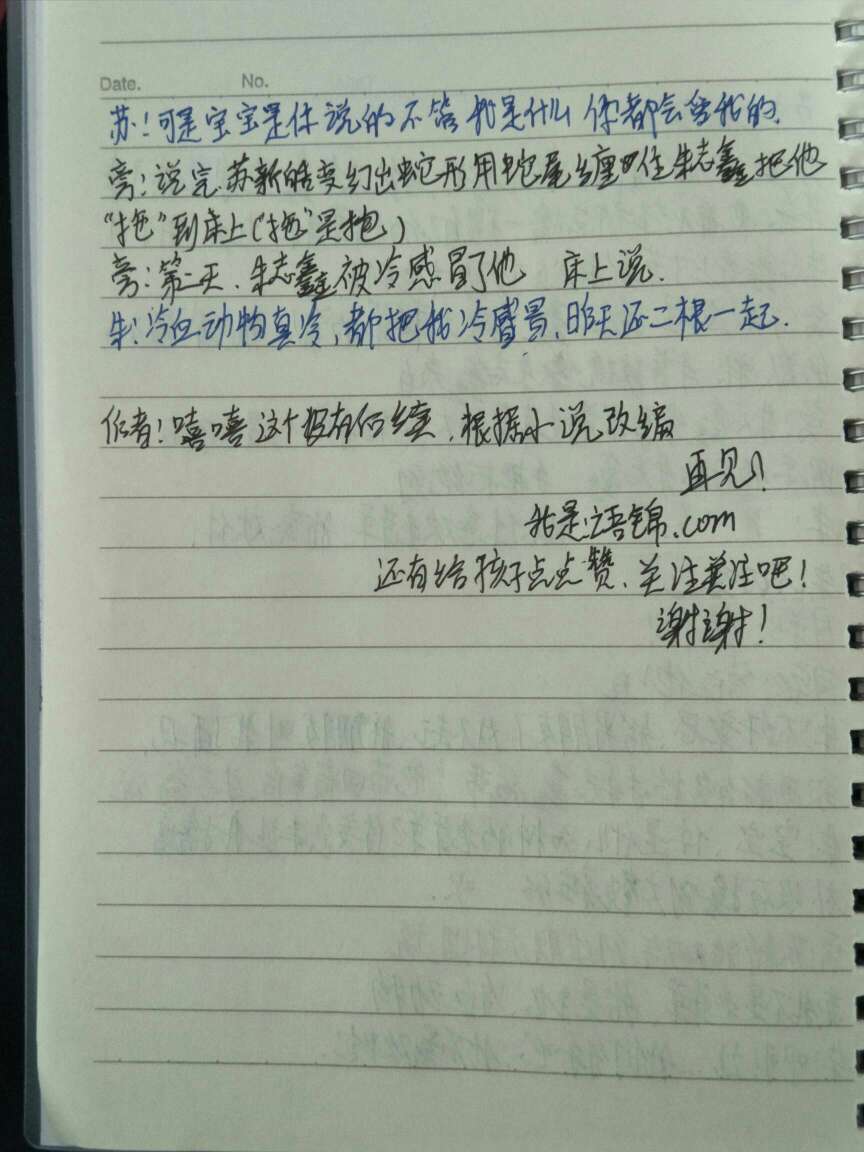 Date. No.
苏！可是宝宝是你说的不管我是什么你都会爱我的.
旁！说完.苏新皓变幻出蛇形用蛇尾缠住朱志鑫把他
“拖”到床上（“拖”是抱）
旁：第二天.朱志鑫被冷感冒了他 床上说.
朱：冷血动物真冷，都把我冷感冒、昨天还二根一起.
作者！嘻嘻这个没有后续.根据小说改编
再见！
我是语锦.com
还有给孩子点点赞、关注关注吧！
谢谢！